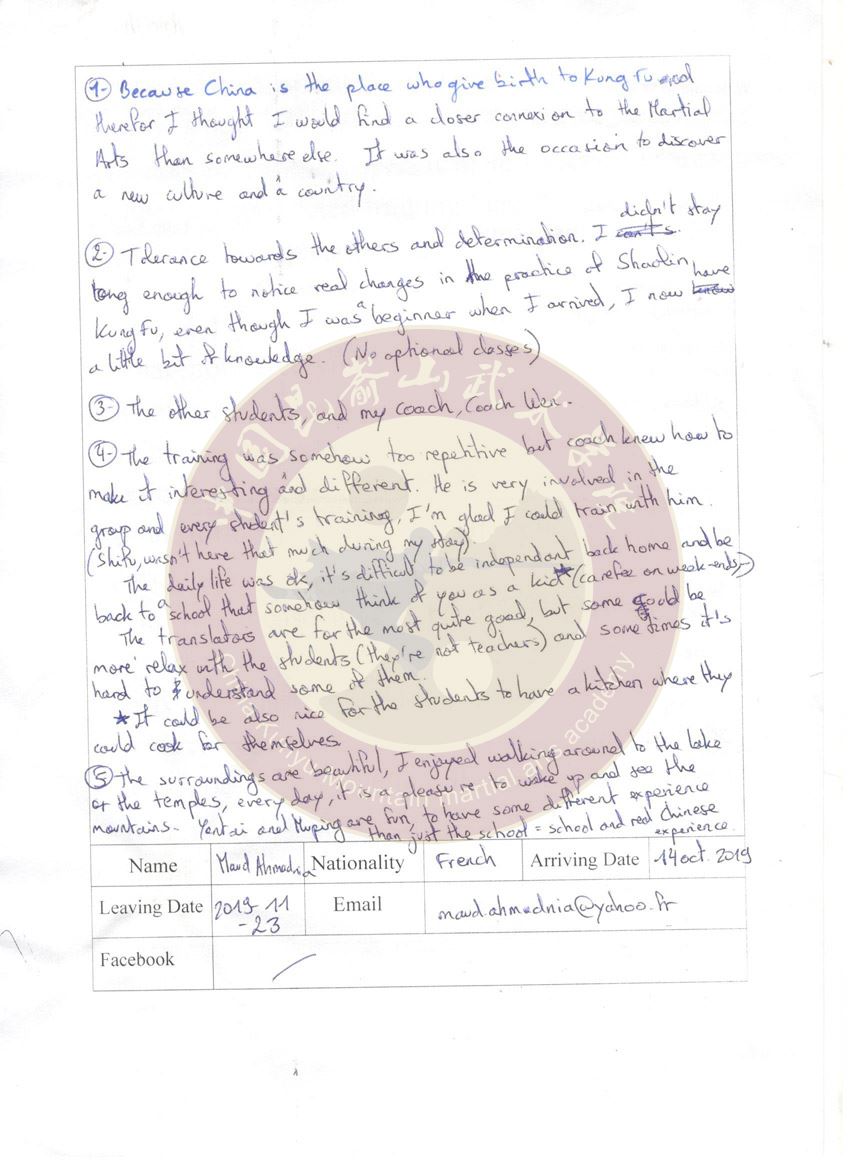 1- Because China is the place who give birth to Kung Fu and
therefor I thought I would find a closer connexion to the Martial
Arts than somewhere else. It was also the occasion to discover
a new culture and a country.
didn't stay
2- Tolerance towards the others and determination. I can't s.
long enough to notice real changes in the practice of Shaolin
have
Kung Fu, even though I was a beginner when I arrived, I now know
a little bit of knowledge. (No optional classes)
3- The other students, and my coach, Coach Wen.
4- The training was somehow too repetitive but coach knew how to
make it interesting and different. He is very involved in the
group and every student's training, I'm glad I could train with him.
(Shifu, wasn't here that much during my stay)
The daily life was ok, it's difficult to be independant back home and be
back to a school that somehow think of you as a kid★ (carefee on week-ends)
The translators are for the most quite good, but some could be
more relax with the students (they're not teachers) and some times it's
hard to understand some of them.
★ It could be also nice for the students to have a kitchen where they
could cook for themselves.
5 The surroundings are beautiful, I enjoyed walking around to the lake
or the temples, every day, it is a pleasure to wake up and see the
mountains. Yantai and Muping are fun, to have some different experience
than just the school = school and real Chinese
experience.
Name Maud Ahmadnia Nationality French Arriving Date 14 oct. 2019
Leaving Date 2019-11-23 Email maud.ahmadnia@yahoo.fr
Facebook
China Kunyu Mountain martial arts academy